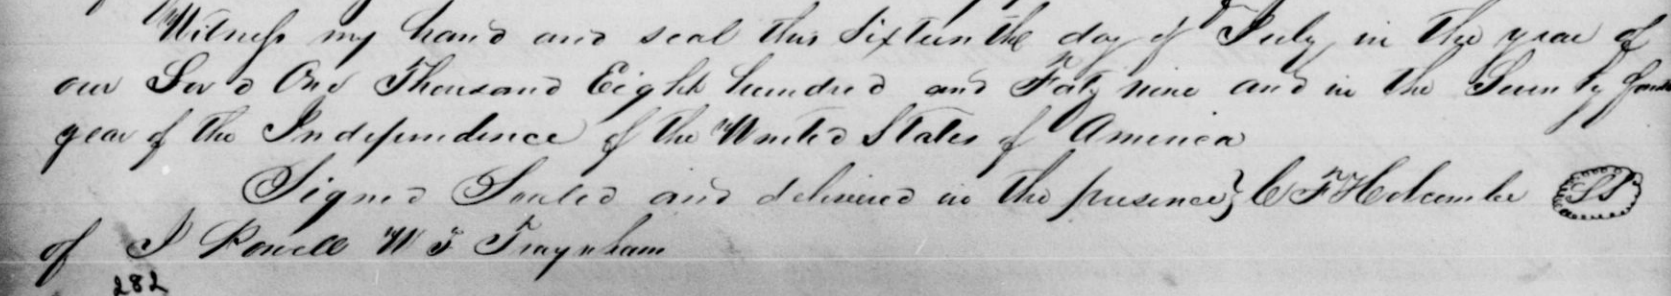 Witness my hand and seal this Sixteenth day of July in the year of
our Lord One Thousand Eight hundred and Forty nine and in the Seventy fourth
year of the Independence of the United States of America
Signed Sealed and delivered in the presence } C F Holcombe LS
of J Powell W F Traynham
282